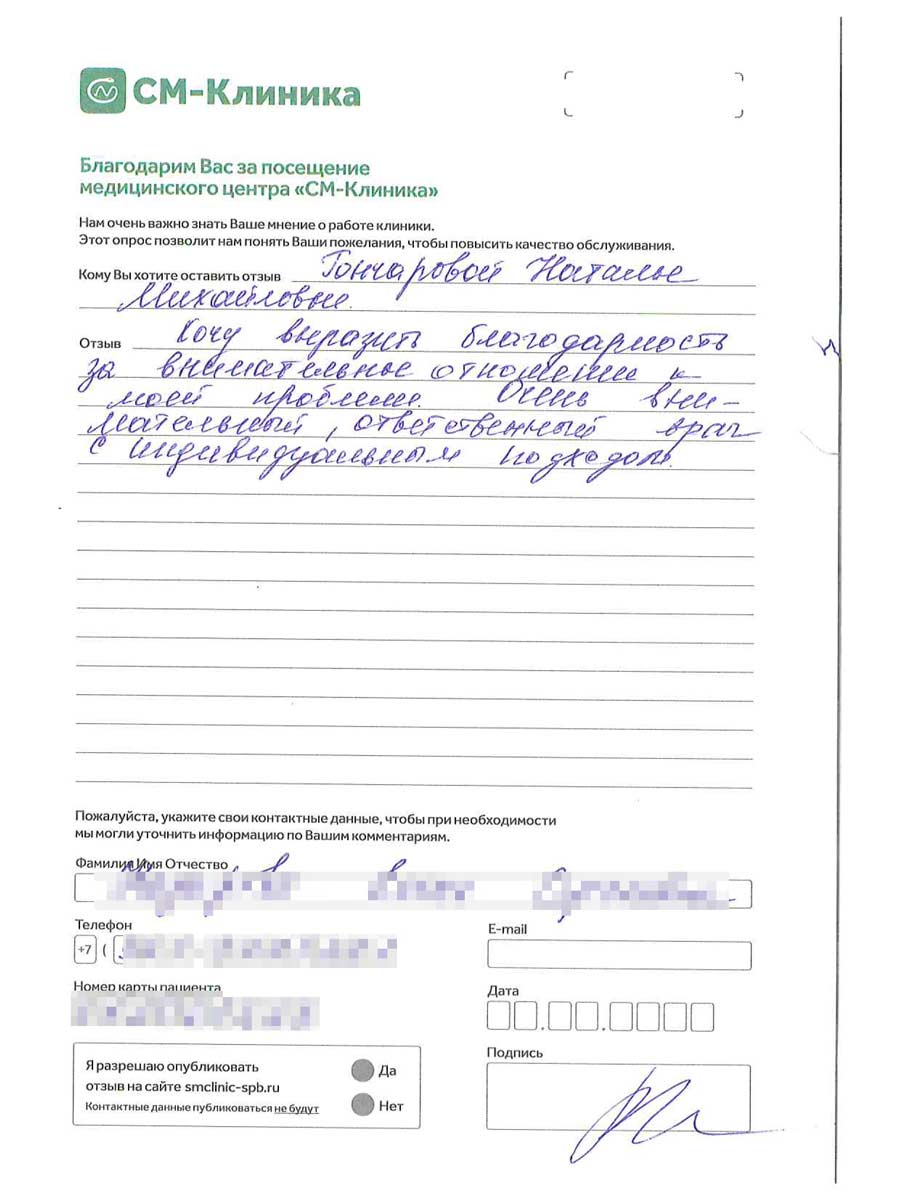 СМ-Клиника
Благодарим Вас за посещение
медицинского центра «СМ-Клиника»
Нам очень важно знать Ваше мнение о работе клиники.
Этот опрос позволит нам понять Ваши пожелания, чтобы повысить качество обслуживания.
Кому Вы хотите оставить отзыв Гончаровой Наталье
Михайловне.
Отзыв Хочу выразить благодарность
за внимательное отношение к
моей проблеме. Очень вни-
мательный, ответственный врач
с индивидуальным подходом.
Пожалуйста, укажите свои контактные данные, чтобы при необходимости
мы могли уточнить информацию по Вашим комментариям.
Фамилия Имя Отчество
Телефон
E-mail
+7 (
Номер карты пациента
Дата
Подпись
Я разрешаю опубликовать
отзыв на сайте smclinic-spb.ru
Контактные данные публиковаться не будут
Да
Нет